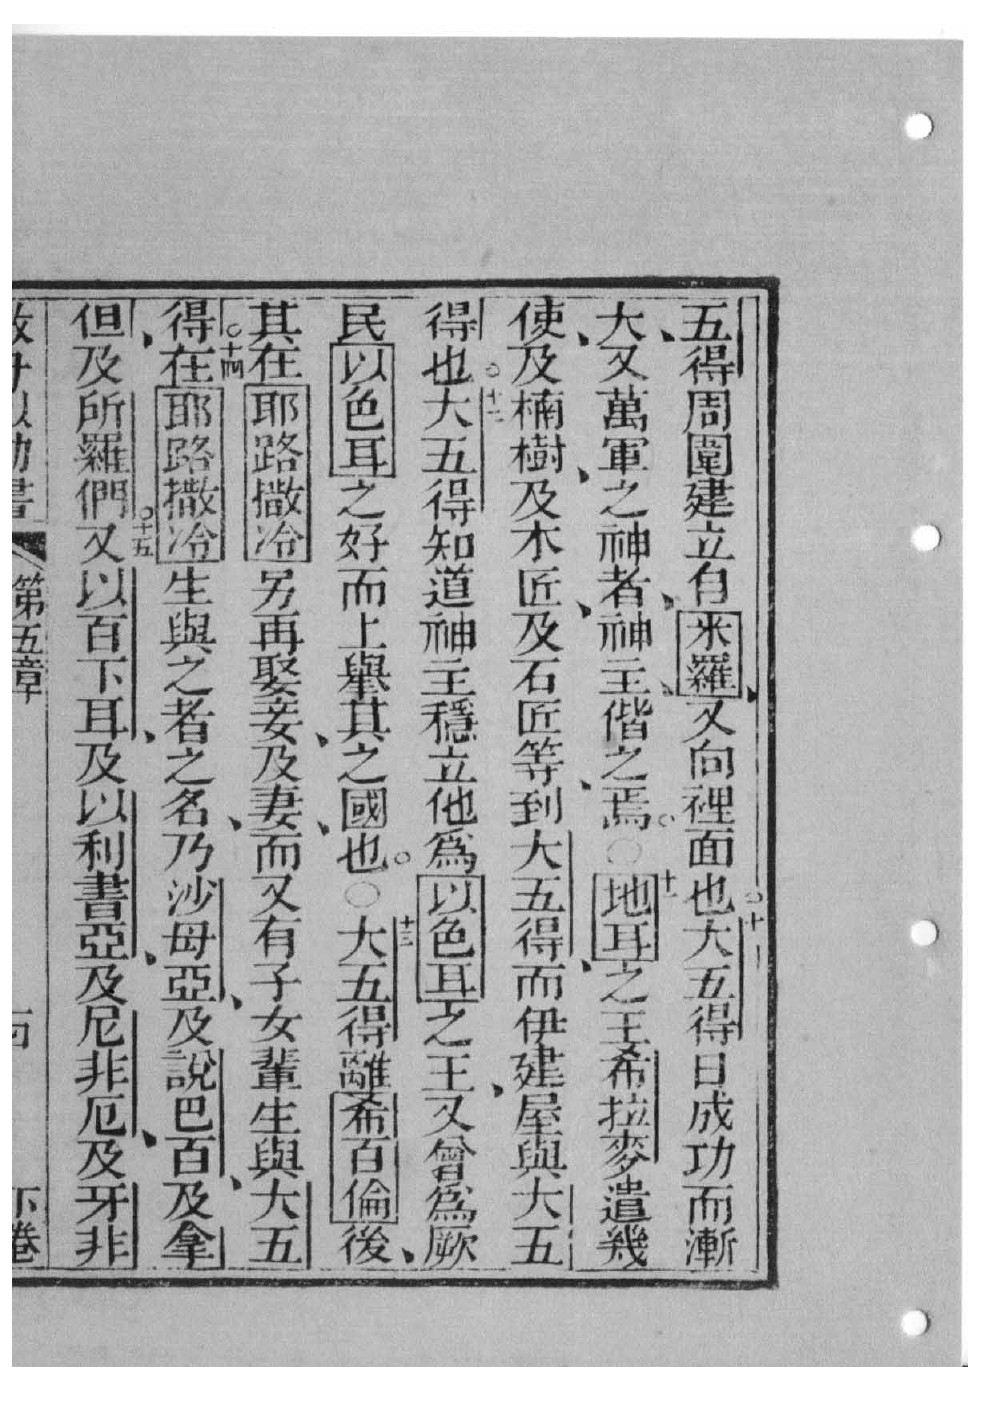 五得周圍建立自米羅又向裡面也○十大五得日成功而漸
大又萬軍之神者神主偕之焉○十一地耳之王希拉麥遣幾
使及楠樹及木匠及石匠等到大五得而伊建屋與大五
得也○十二大五得知道神主穩立他爲以色耳之王又曾爲厥
民以色耳之好而上舉其之國也○十三大五得離希百倫後
其在耶路撒冷另再娶妾及妻而又有子女輩生與大五
得○十四在耶路撒冷生與之者之名乃沙毋亞及說巴百及拿
但及所羅們○十五又以百下耳及以利書亞及尼非厄及牙非
第五章
下卷